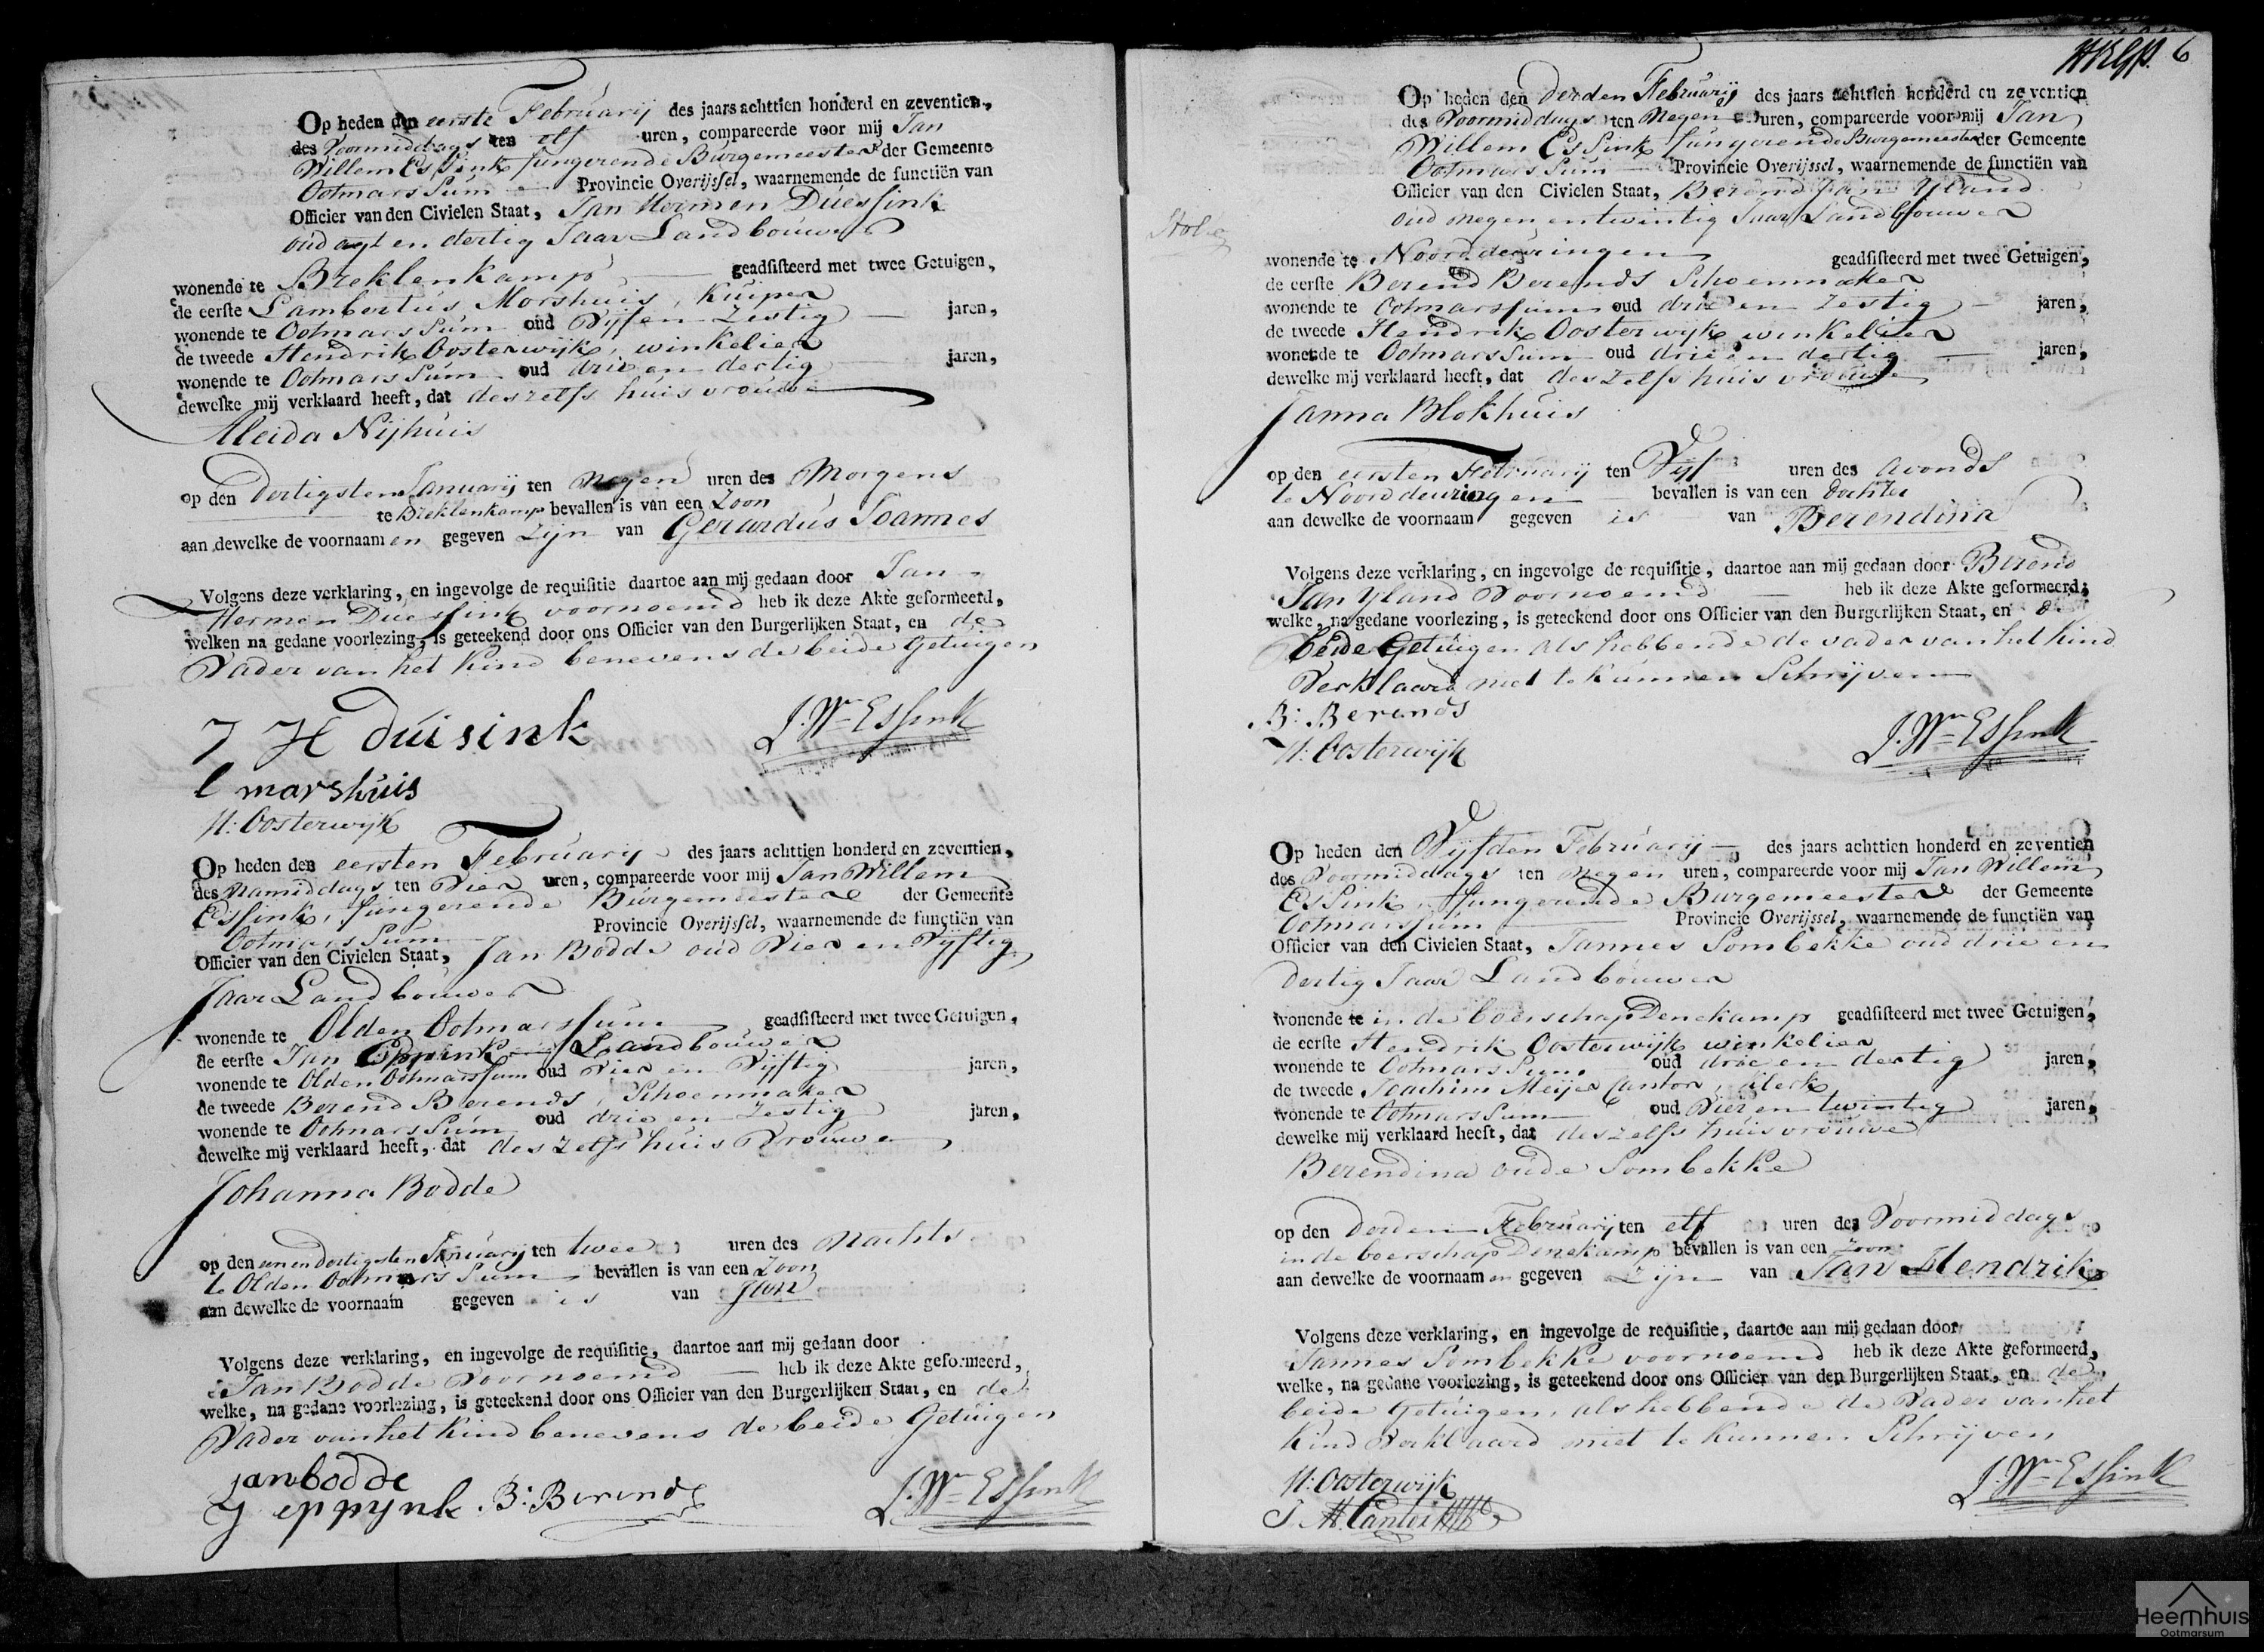 Op heden den eerste Februarij des jaars achttien honderd en zeventien,
des Voormiddags ten elf uren, compareerde voor mij Jan
Willem Essink fungerende Burgemeester der Gemeente
Ootmarssum Provincie Overijssel, waarnemende de functiën van
Officier van den Civielen Staat, Jan Hermen Duessink
oud agt en dertig Jaar Landbouwer
wonende te Breklenkamp geadsisteerd met twee Getuigen,
de eerste Lambertus Morshuis, Kuiper
wonende te Ootmarssum oud Vijf en Zestig jaren,
de tweede Hendrik Oosterwijk, winkelier
wonende te Ootmarssum oud drie en dertig jaren,
dewelke mij verklaard heeft, dat deszelfs huisvrouwe
Aleida Nijhuis
op den dertigsten Januarij ten Negen uren des Morgens
te Breklenkamp bevallen is van een Zoon
aan dewelke de voornaamen gegeven Zijn van Gerardus Joannes
Volgens deze verklaring, en ingevolge de requisitie daartoe aan mij gedaan door Jan
Hermen Duessink voornoemd heb ik deze Akte geformeerd,
welken na gedane voorlezing, is geteekend door ons Officier van den Burgerlijken Staat, en de
Vader van het Kind benevens de beide Getuigen
J H duisink J. Wm Essink
l marshuis
H: Oosterwijk
Op heden den eersten Februarij des jaars achttien honderd en zeventien,
des Namiddags ten Vier uren, compareerde voor mij Jan Willem
Essink, fungerende Burgemeester der Gemeente
Ootmarssum Provincie Overijssel, waarnemende de functiën van
Officier van den Civielen Staat, Jan Bodde oud Vier en Vijftig
Jaar Landbouwer
wonende te Olden Ootmarssum geadsisteerd met twee Getuigen,
de eerste Jan Eppink Landbouwer
wonende te Olden Ootmarssum oud Vier en Vijftig jaren,
de tweede Berend Berends, Schoenmaker
wonende te Ootmarssum oud drie en Zestig jaren,
dewelke mij verklaard heeft, dat deszelfs huis Vrouwe
Johanna Bodde
op den eenendertigsten Januarij ten twee uren des Nachts
te Olden Ootmarssum bevallen is van een Zoon
aan dewelke de voornaam gegeven is van Jan
Volgens deze verklaring, en ingevolge de requisitie, daartoe aan mij gedaan door
Jan Bodde Voornoemd heb ik deze Akte geformeerd,
welke, na gedane voorlezing, is geteekend door ons Officier van den Burgerlijken Staat, en de
Vader van het Kind benevens de beide Getuigen
jan bodde
J eppynk B: Berends J. Wm Essink
6
Op heden den derden Februarij des jaars achttien honderd en zeventien
des Voormiddags ten Negen uren, compareerde voor mij Jan
Willem Essink fungerende Burgemeester der Gemeente
Ootmarssum Provincie Overijssel, waarnemende de functiën van
Officier van den Civielen Staat, Berend Jan Yland
oud negen en twintig Jaar Landbouwer
wonende te Noorddeuringen geadsisteerd met twee Getuigen,
de eerste Berend Berends Schoenmaker
wonende te Ootmarssum oud drie en Zestig jaren,
de tweede Hendrik Oosterwijk winkelier
wonende te Ootmarssum oud drie en dertig jaren,
dewelke mij verklaard heeft, dat deszelfs huisvrouwe
Janna Blokhuis
op den eersten Februarij ten Vijf uren des avonds
te Noorddeuringen bevallen is van een dochter
aan dewelke de voornaam gegeven is van Berendina
Volgens deze verklaring, en ingevolge de requisitie, daartoe aan mij gedaan door Berend
Jan Yland Voornoemd heb ik deze Akte geformeerd;
welke, na gedane voorlezing, is geteekend door ons Officier van den Burgerlijken Staat, en de
beide Getuigen als hebbende de vader van het Kind
Verklaard niet te kunnen Schrijven
B: Berends
H: Oosterwijk J. Wm Essink
Op heden den Vijfden Februarij des jaars achttien honderd en zeventien
des Voormiddags ten negen uren, compareerde voor mij Jan Willem
Essink, fungerende Burgemeester der Gemeente
Ootmarssum Provincie Overijssel, waarnemende de functiën van
Officier van den Civielen Staat, Jannes Sombekke oud drie en
dertig Jaar Landbouwer
wonende te in de boerschap Denekamp geadsisteerd met twee Getuigen,
de eerste Hendrik Oosterwijk winkelier
wonende te Ootmarssum oud drie en dertig jaren,
de tweede Joachim Meijer Cantor, Klerk
wonende te Ootmarssum oud Vier en twintig jaren,
dewelke mij verklaard heeft, dat deszelfs huisvrouwe
Berendina oude Sombekke
op den derden Februarij ten elf uren des Voormiddags
in de boerschap Denekamp bevallen is van een Zoon
aan dewelke de voornaamen gegeven Zijn van Jan Hendrik
Volgens deze verklaring, en ingevolge de requisitie, daartoe aan mij gedaan door
Jannes Sombekke voornoemd heb ik deze Akte geformeerd,
welke, na gedane voorlezing, is geteekend door ons Officier van den Burgerlijken Staat, en de
beide Getuigen, als hebbende de Vader van het
Kind Verklaard niet te kunnen Schrijven
H: Oosterwijk J. Wm Essink
J. M. Cantor
Heemhuis
Ootmarsum